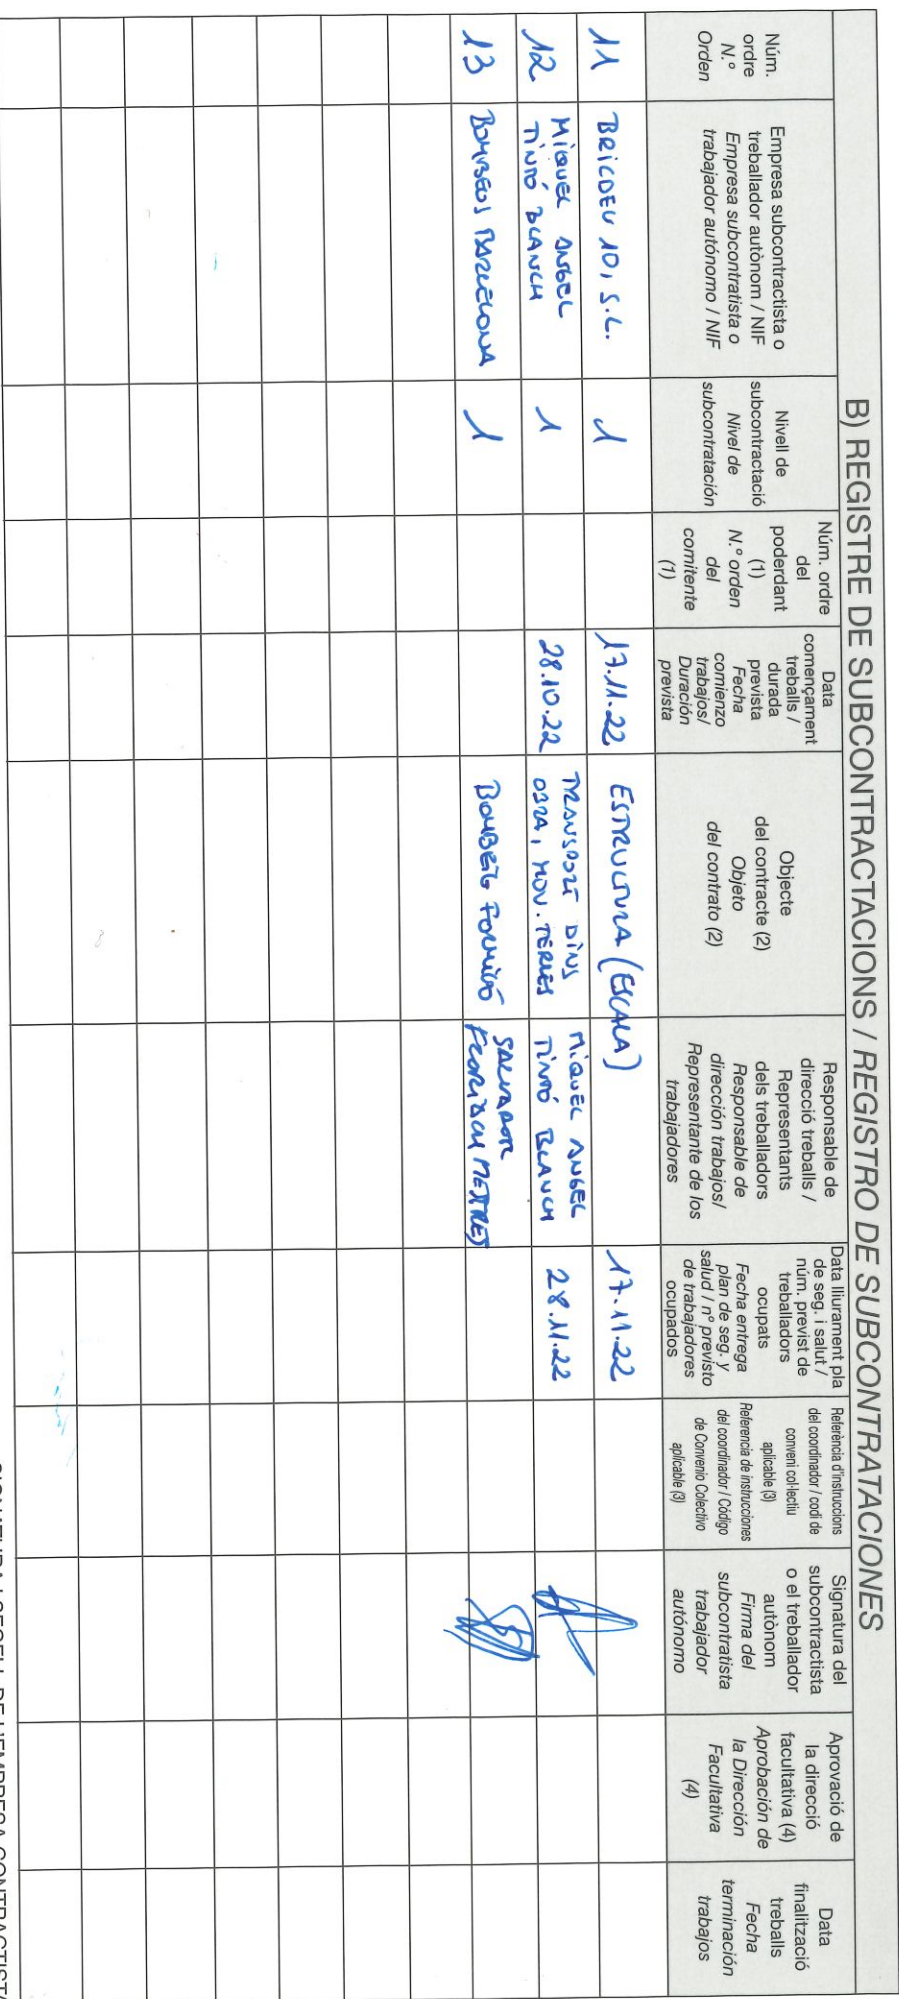 B) REGISTRE DE SUBCONTRACTACIONS / REGISTRO DE SUBCONTRATACIONES
Núm.
ordre
N.º
Orden
Empresa subcontractista o
treballador autònom / NIF
Empresa subcontratista o
trabajador autónomo / NIF
Nivell de
subcontractació
Nivel de
subcontratación
Núm. ordre
del
poderdant
(1)
N.º orden
del
comitente
(1)
Data
començament
treballs /
durada
prevista
Fecha
comienzo
trabajos/
Duración
prevista
Objecte
del contracte (2)
Objeto
del contrato (2)
Responsable de
direcció treballs /
Representants
dels treballadors
Responsable de
dirección trabajos/
Representante de los
trabajadores
Data lliurament pla
de seg. i salut /
núm. previst de
treballadors
ocupats
Fecha entrega
plan de seg. y
salud / nº previsto
de trabajadores
ocupados
Referència d'instruccions
del coordinador / codi de
conveni col·lectiu
aplicable (3)
Referencia de instrucciones
del coordinador / Código
de Convenio Colectivo
aplicable (3)
Signatura del
subcontractista
o el treballador
autònom
Firma del
subcontratista
trabajador
autónomo
Aprovació de
la direcció
facultativa (4)
Aprobación de
la Dirección
Facultativa
(4)
Data
finalització
treballs
Fecha
terminación
trabajos
11
BRICODEU 10, S.L.
1
17.11.22
ESTRUCTURA (ESCALA)
17.11.22
12
MIQUEL ANGEL
TINTÓ BLANCH
1
28.10.22
TRANSPORT DINS
OBRA, MOV. TERRES
MIQUEL ANGEL
TINTÓ BLANCH
28.11.22
13
BOMBEOS BARCELONA
1
BOMBEIG FORMIGÓ
SALVADOR
MESTRES
SIGNATURA I SEGELL DE L'EMPRESA CONTRACTISTA